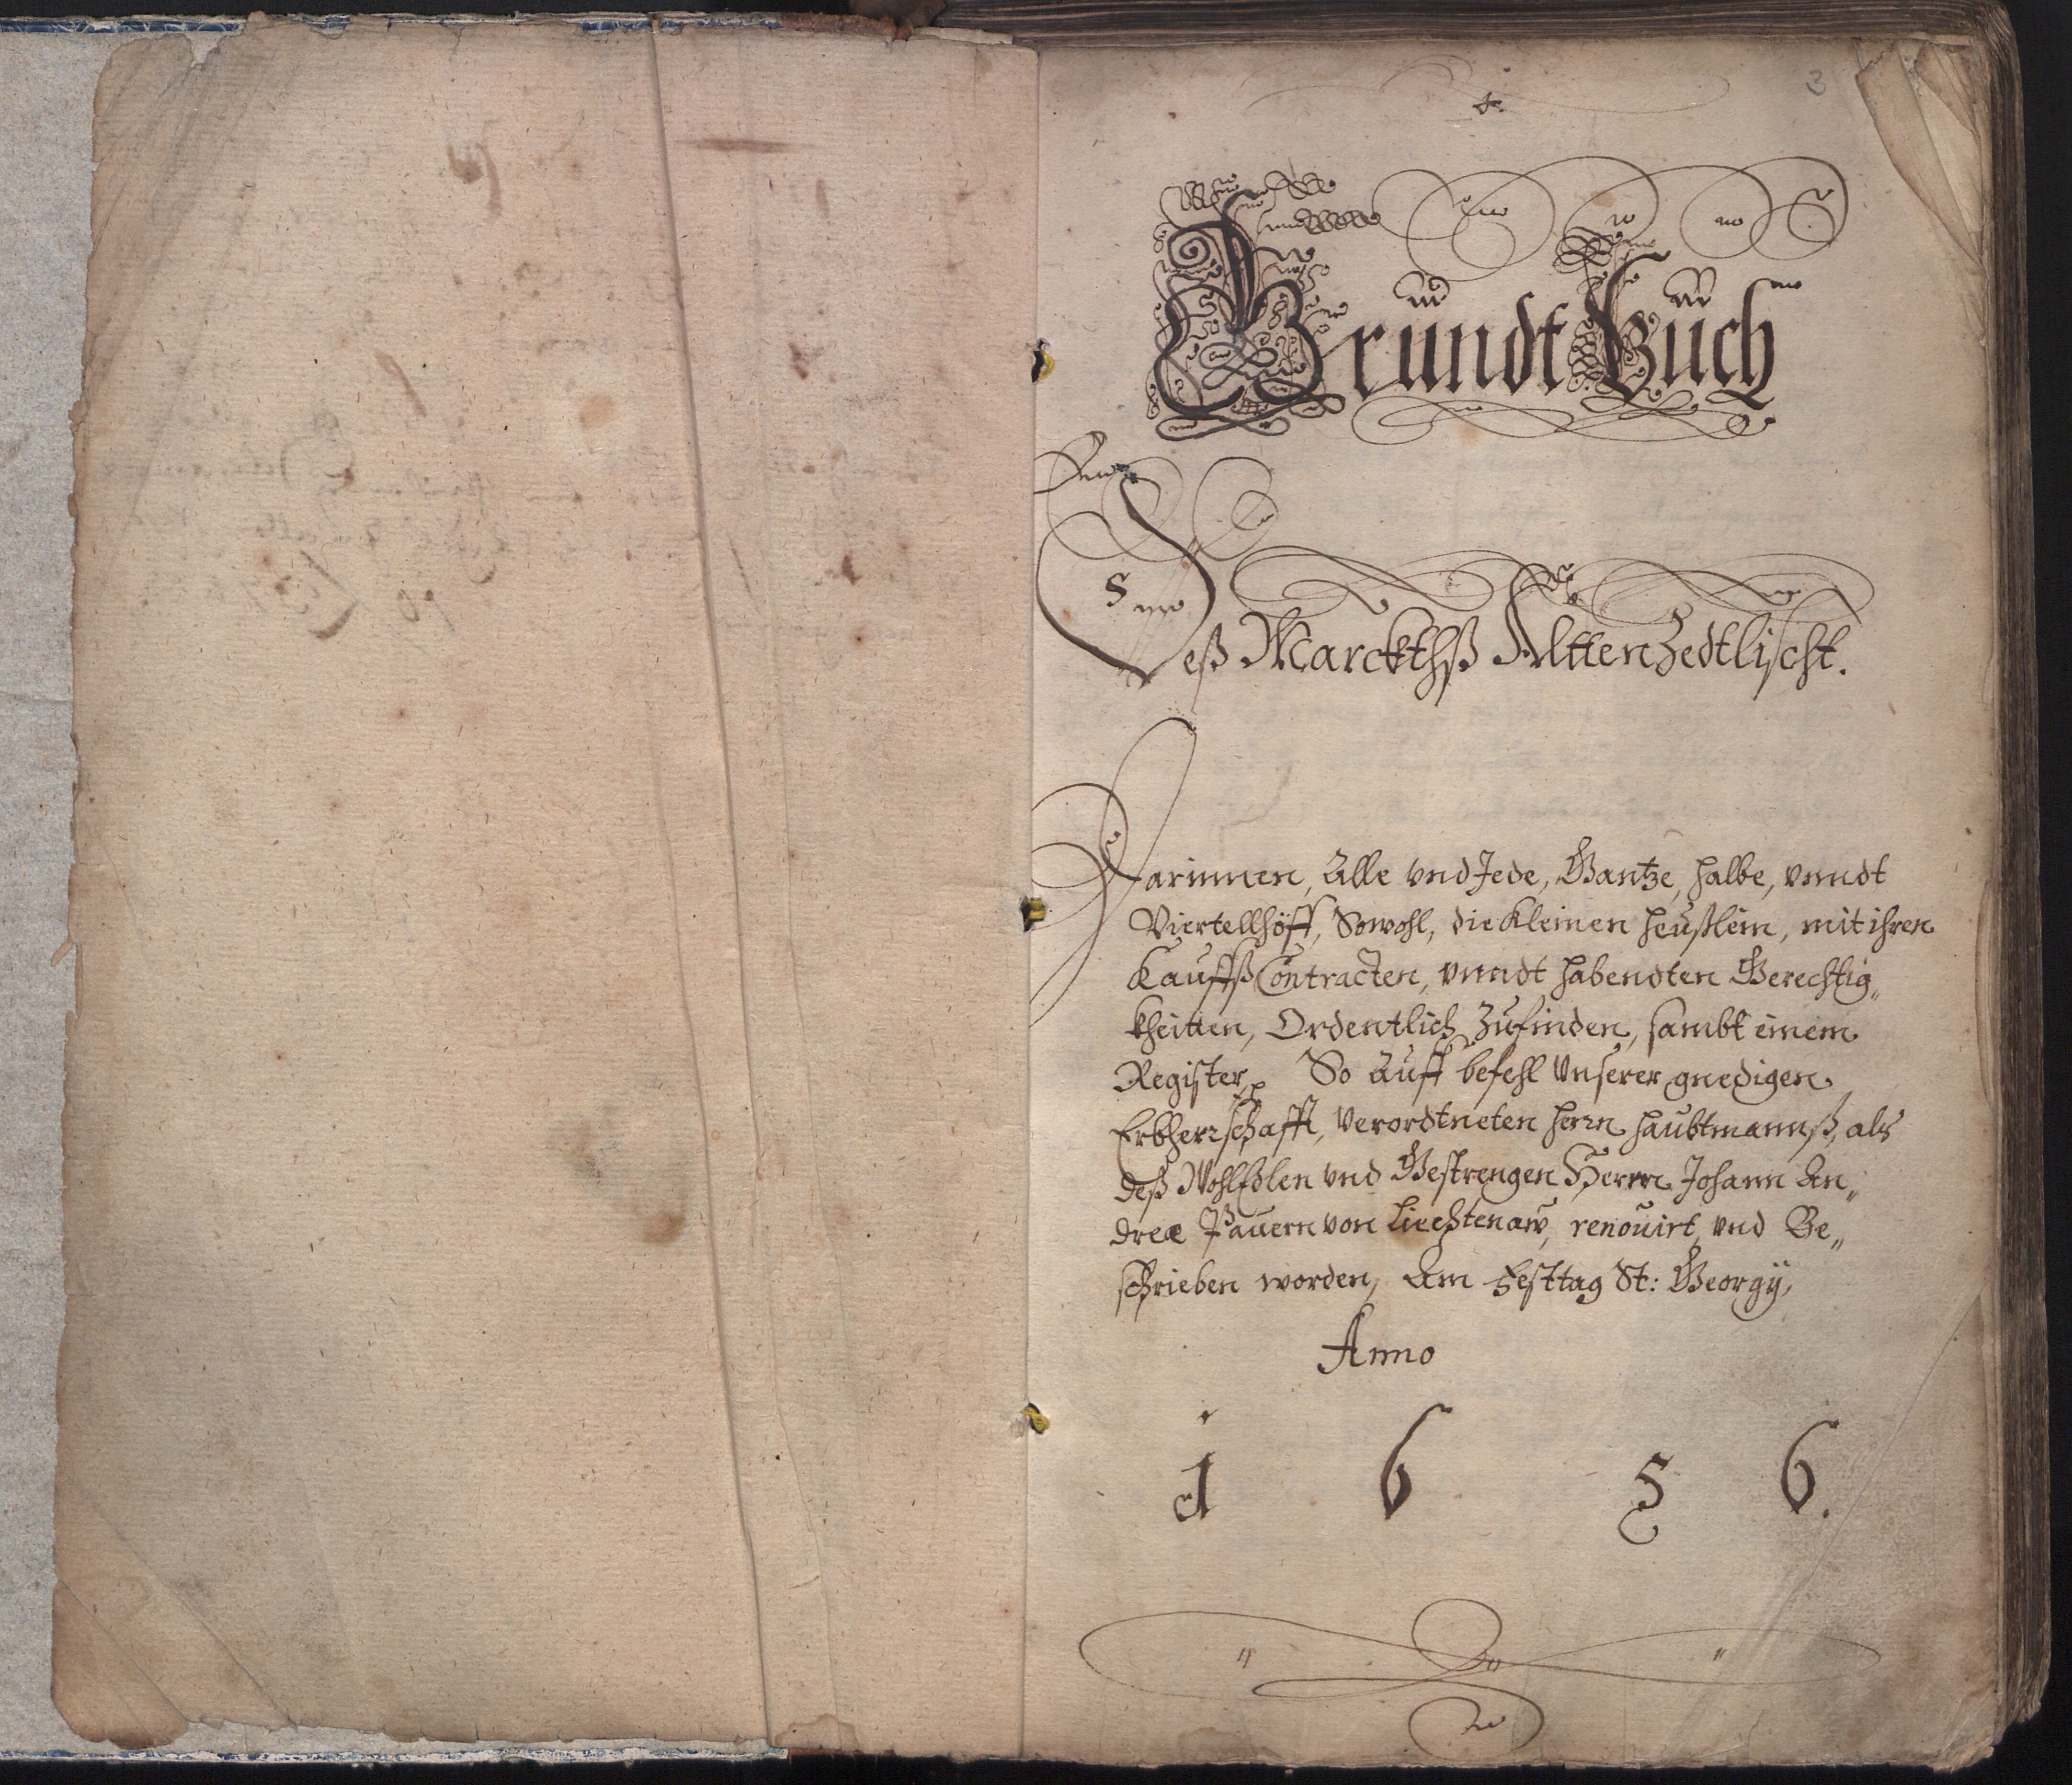 3
Grundt Buch
Deß Marckthß Alttenzedtlischt.
Darinnen, Alle vnd Jede, Gantze, halbe, vnndt
Viertellhöff, Sowohl, die Kleinen heußlein, mit ihren
Kauffß Contracten, vnndt habendten Gerechtig„
kheitten, Ordentlich zufinden, sambt einem
Register, So Auff befehl Vnserer gnedigen
Erbherrschafft, Verordtneten herrn haubtmannß, als
deß WohlEdlen vnd Gestrengen Herrn Johann An„
dreæ Pauern von Liechtenaw, renouirt, vnd Be„
schrieben worden, Am Festtag St: Georgÿ,
Anno
1 6 5 6.